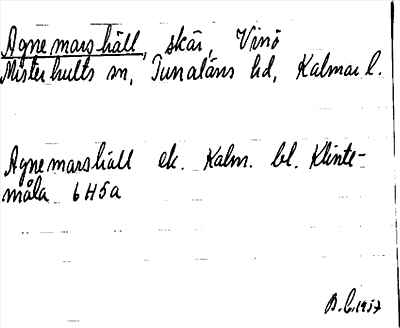 Agnemarshäll, skär, Vinö
Misterhults sn, Tunaläns hd, Kalmar l.
Agnemarshäll ek. Kalm. bl. Klinte-
måla 6H5a
B.L. 1937